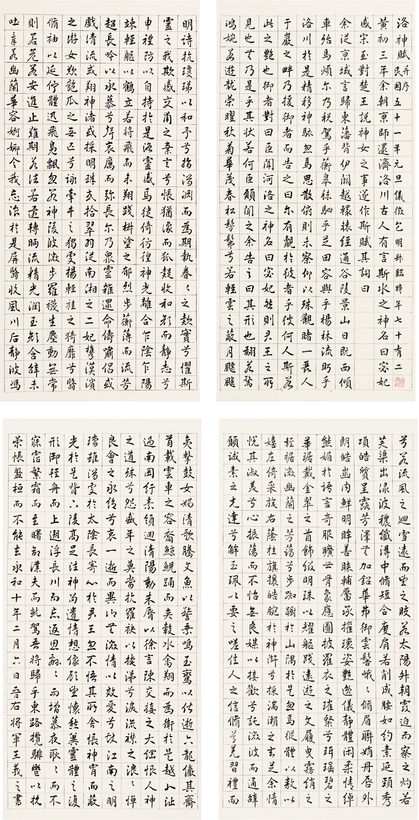 洛神賦并序 民國五十一年元旦儀徵包明叔臨時年七十有二
黃初三年余朝京師還濟洛川古人有言斯水之神名曰宓妃
感宋玉對楚王說神女之事遂作斯賦其詞曰
余從京域言歸東藩背伊闕越轘轅經通谷陵景山日既西傾
車殆馬煩爾乃稅駕乎蘅皋秣駟乎芝田容與乎楊林流眄乎
洛川於是精移神駭忽焉思散俯則未察仰以殊觀睹一麗人
于巖之畔乃援御者而告之曰爾有覿於彼者乎彼何人斯若
此之艷也御者對曰臣聞河洛之神名曰宓妃然則君王之所
見也無乃是乎其狀若何臣願聞之余告之曰其形也翩若驚
鴻婉若遊龍榮曜秋菊華茂春松髣髴兮若輕雲之蔽月飄飄
兮若流風之迴雪遠而望之皎若太陽升朝霞迫而察之灼若
芙蕖出淥波穠纖得中脩短合度肩若削成腰如約素延頸秀
項皓質呈露芳澤無加鉛華弗御雲髻峨峨脩眉聯娟丹脣外
朗皓齒內鮮明眸善睞輔靨承權瓌姿艷逸儀靜體閑柔情綽
態媚於語言奇服曠世骨象應圖披羅衣之璀粲兮珥瑤碧之
華琚戴金翠之首飾綴明珠以耀軀踐遠遊之文履曳霧綃之
輕裾微幽蘭之芳藹兮步踟躕於山隅於是忽焉縱體以遨以
嬉左倚采旄右蔭桂旗攘皓腕於神滸兮采湍瀨之玄芝余情
悅其淑美兮心振蕩而不怡無良媒以接歡兮託微波而通辭
願誠素之先達兮解玉珮以要之嗟佳人之信脩羌習禮而
明詩抗瓊珶以和予兮指潛淵而為期執眷眷之款實兮懼斯
靈之我欺感交甫之棄言兮悵猶豫而狐疑收和顏而靜志兮
申禮防以自持於是洛靈感焉徙倚彷徨神光離合乍陰乍陽
竦輕軀以鶴立若將飛而未翔踐椒塗之郁烈步蘅薄而流芳
超長吟以永慕兮聲哀厲而彌長爾乃眾靈雜遝命儔嘯侶或
戲清流或翔神渚或采明珠或拾翠羽從南湘之二妃攜漢濱
之遊女歎匏瓜之無匹兮詠牽牛之獨處揚輕袿之猗靡兮翳
脩袖以延佇體迅飛鳧飄忽若神陵波微步羅襪生塵動無常
則若危若安進止難期若往若還轉眄流精光潤玉顏含辭未
吐氣若幽蘭華容婀娜令我忘湌於是屏翳收風川后靜波馮
夷擊鼓女媧清歌騰文魚以警乘鳴玉鸞以偕逝六龍儼其齊
首載雲車之容裔鯨鯢踊而夾轂水禽翔而為衛於是越北沚
過南岡紆素領迴清陽動朱脣以徐言陳交接之大綱恨人神
之道殊兮怨盛年之莫當抗羅袂以掩涕兮淚流襟之浪浪悼
良會之永絕兮哀一逝而異鄉無微情以效愛兮獻江南之明
璫雖潛處於太陰長寄心於君王忽不悟其所舍悵神宵而蔽
光於是背下陵高足往神留遺情想像顧望懷愁冀靈體之復
形御輕舟而上遡浮長川而忘反思緜緜而增慕夜耿耿而不
寐霑繁霜而至曙命僕夫而就駕吾將歸乎東路攬騑轡以抗
策悵盤桓而不能去永和十年二月六日晉右將軍王羲之書